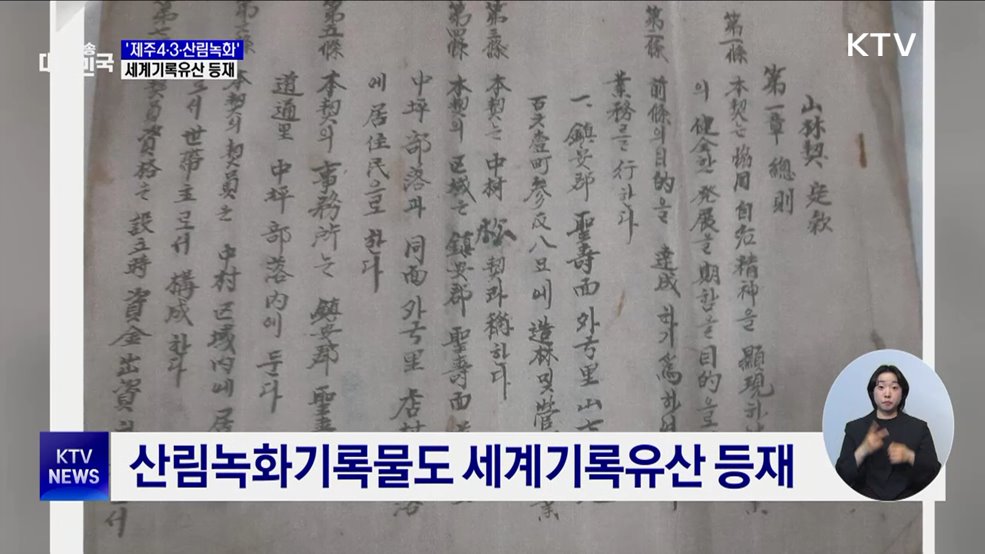 대한민국
'제주4·3·산림녹화'
세계기록유산 등재
KTV
山林契 定款
第一章 總則
第一條 本契는 協同自治精神을 顯現하
의 健全한 發展을 期함을 目的으로
第二條 前條의 目的을 達成하기 爲하여
業務를 行하다
一. 鎭安郡 聖壽面 外弓里 山七
町參反八畝에 造林 및 營
第三條 本契는 中村 松契라 稱하다
第四條 本契의 区域은 鎭安郡 聖壽面
中坪部落과 同面 外弓里 店村
에 居住民으로 한다
第五條 本契의 事務所는 鎭安郡 聖壽
道通里 中坪部落內에 둔다
本契의 契員은 中村区域內에 居
로서 世帶主로서 構成하다
第七 契員資格은 設立時 資金出資
KTV
NEWS
산림녹화기록물도 세계기록유산 등재